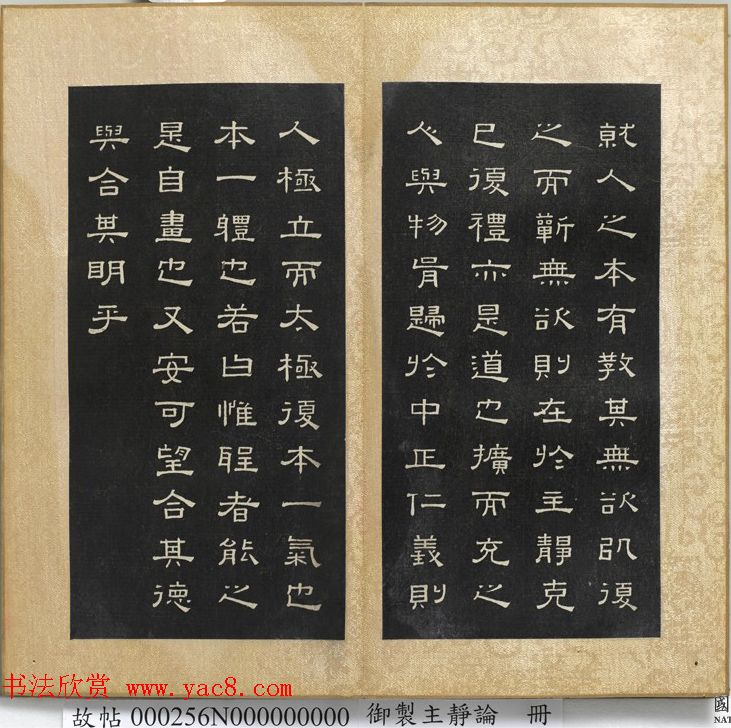 就人之本有教其無欲即復
之而蘄無欲則在於主靜克
己復禮亦是道也擴而充之
人與物胥歸於中正仁義則
人極立而太極復本一氣也
本一體也若曰惟聖者能之
是自畫也又安可望合其德
與合其明乎
书法欣赏 www.yac8.com
故帖 000256N000000000 御製主靜論 冊
國
NAT